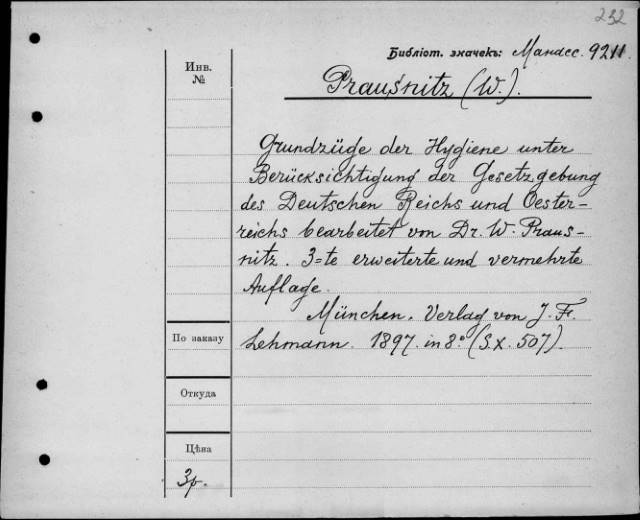 232
Библіот. значекъ: Мандес. 9211
Инв.
№
Prausnitz (W.).
Grundzüge der Hygiene unter
Berücksichtigung der Gesetzgebung
des Deutschen Reichs und Oester-
reichs bearbeitet von Dr. W. Praus-
nitz. 3=te erweiterte und vermehrte
Auflage.
München. Verlag von J. F.
Lehmann. 1897. in 8.° (S.X. 507).
По заказу
Откуда
Цѣна
3р.